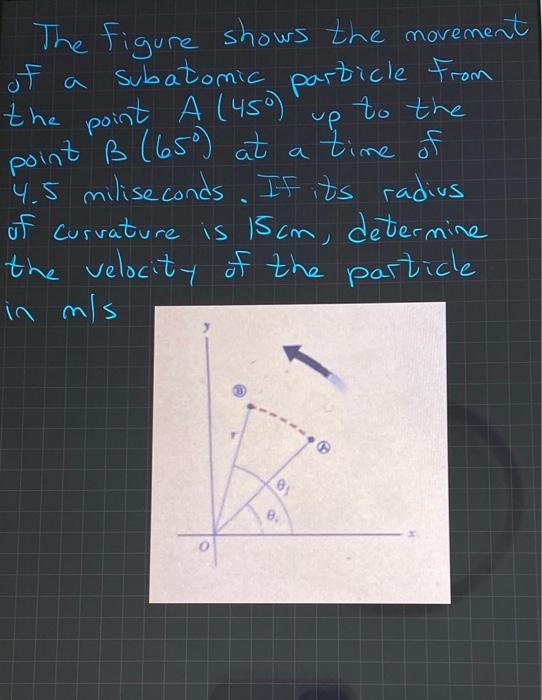 The figure shows the movement
of a subatomic particle from
the point A (45°) up to the
point B (65°) at a time of
4.5 miliseconds. If its radius
of curvature is 15cm, determine
the velocity of the particle
in m/s
y
B
r
A
θf
θi
O
x